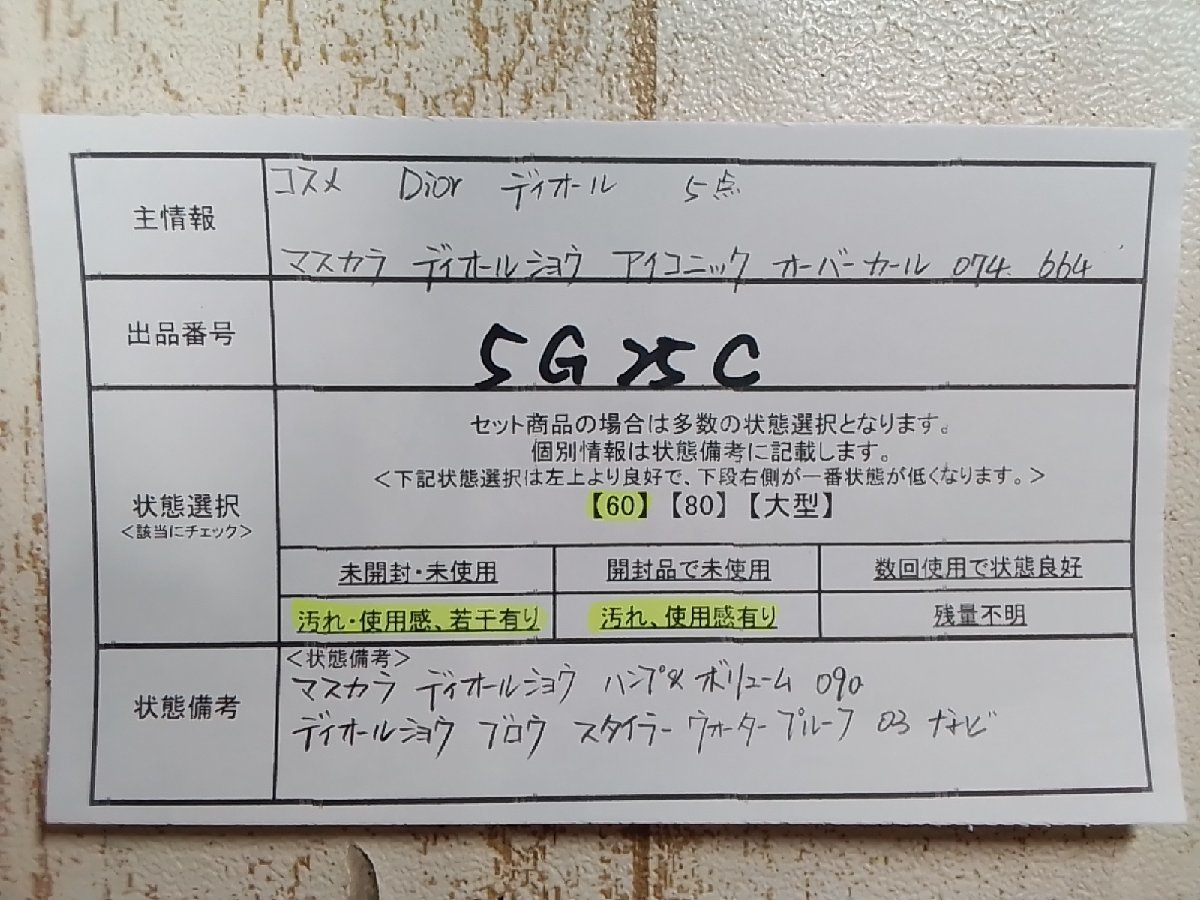 主情報
コスメ Dior ディオール 5点
マスカラ ディオールショウ アイコニック オーバーカール 074 664
出品番号
5G25C
状態選択
<該当にチェック>
セット商品の場合は多数の状態選択となります。
個別情報は状態備考に記載します。
<下記状態選択は左上より良好で、下段右側が一番状態が低くなります。>
【60】【80】【大型】
未開封・未使用 開封品で未使用 数回使用で状態良好
汚れ・使用感、若干有り 汚れ、使用感有り 残量不明
状態備考
<状態備考>
マスカラ ディオールショウ パンプ& ボリューム 090
ディオールショウ ブロウ スタイラー ウォータープルーフ 03 など